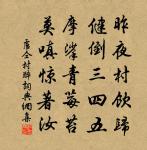 昨夜村飲歸
健倒三四五
摩挲青莓苔
莫嗔驚著汝
盧仝村醉詞典網集